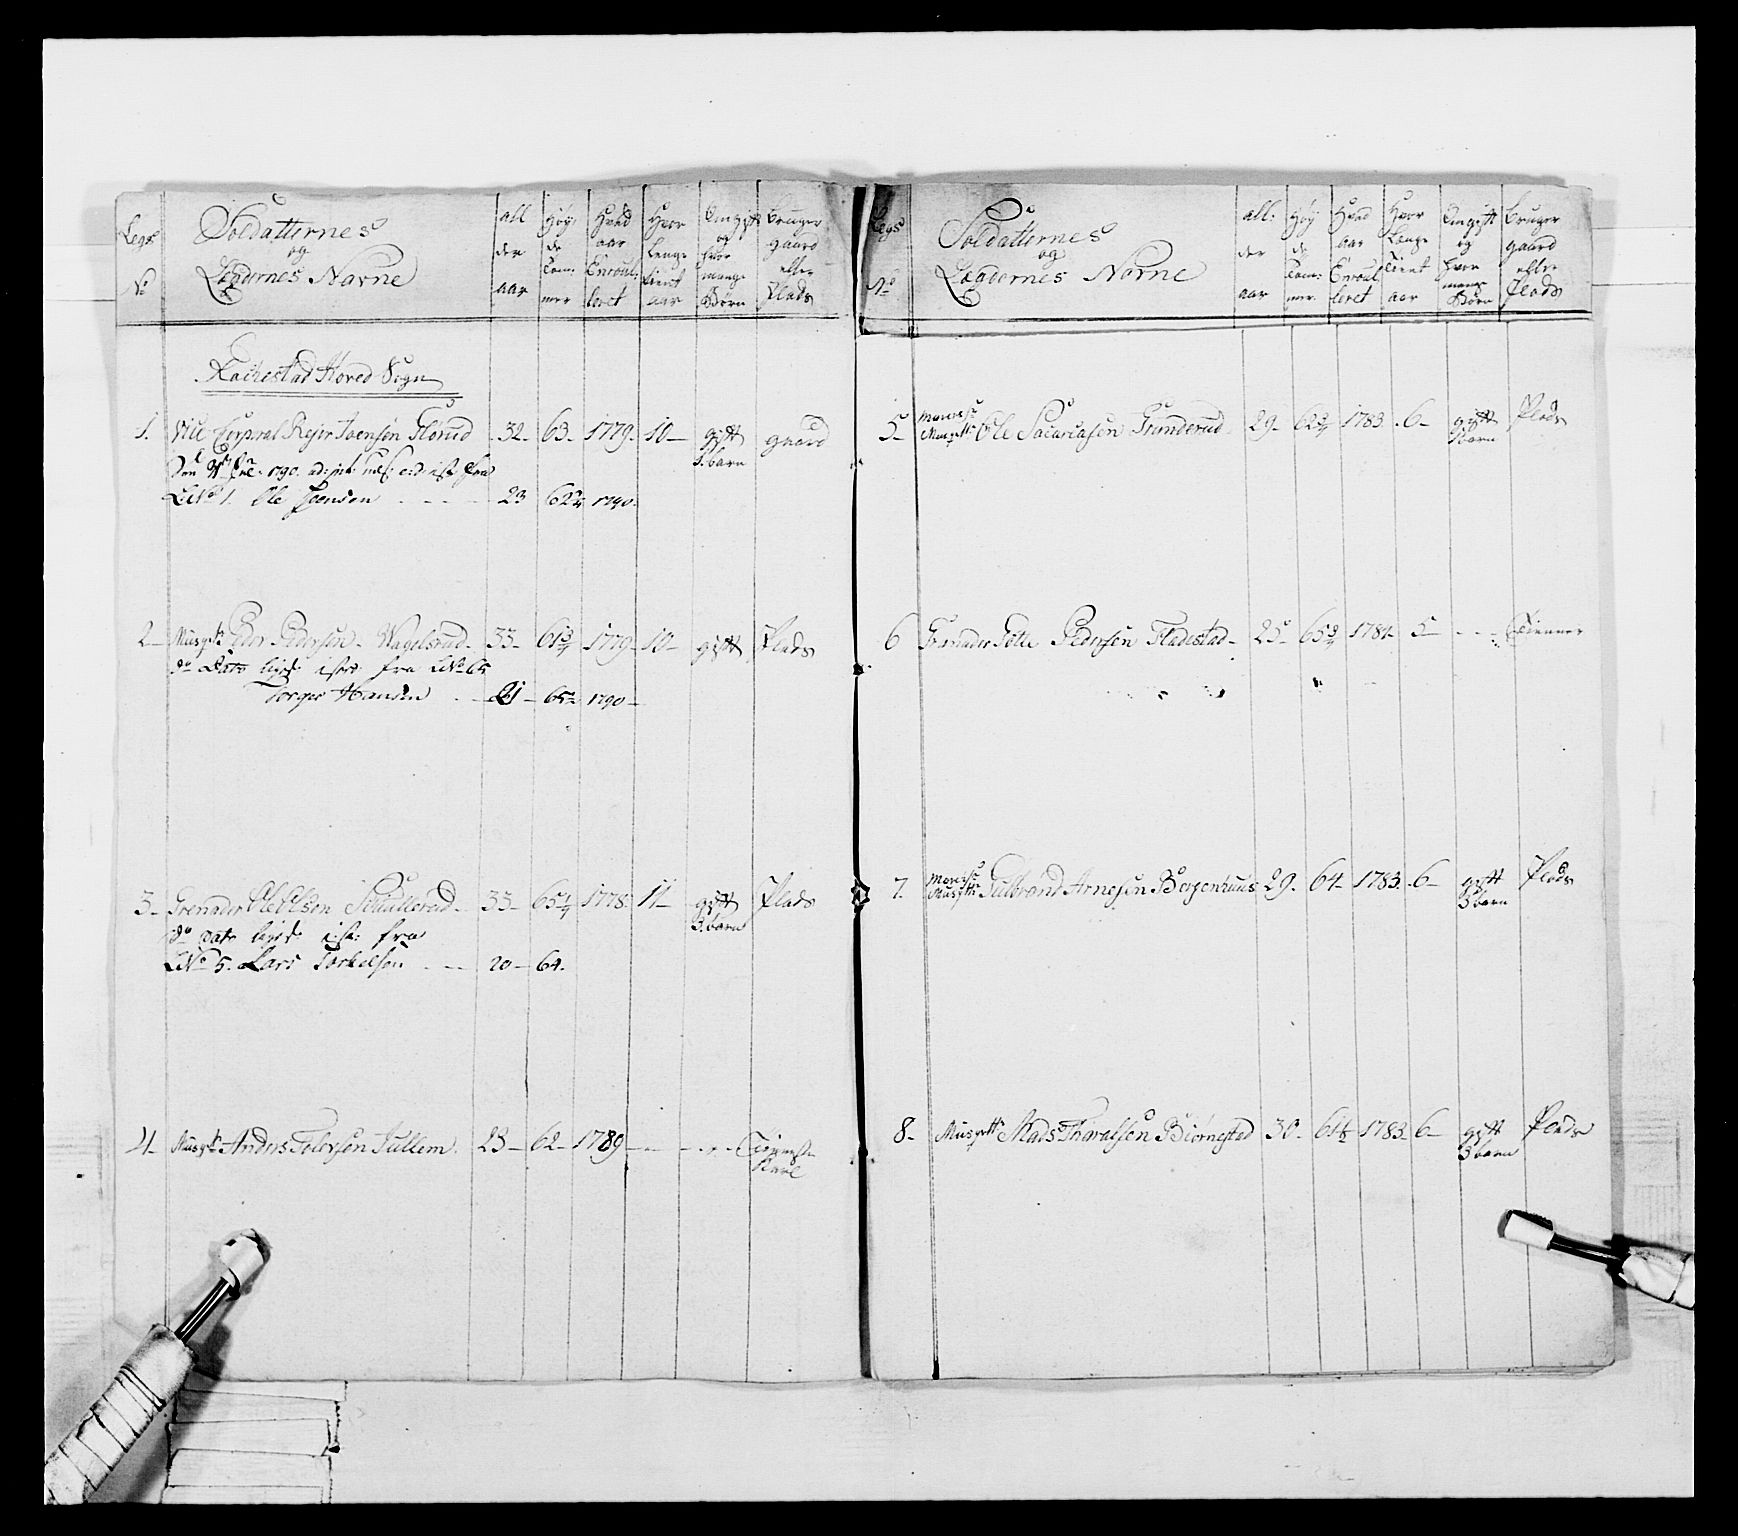 Legs
No
Soldatternes
og
Lægdernes Navne
all
der
aar
Høy
de
Tom:
mer
Hvad
aar
Enroul:
leret
Hvor
Lenge
tient
aar
Omgift
og
hvor
mange
Børn
Bruger
gaard
eller
Plads
Rachestad Hoved Sogn
1. Vice Corporal Rejer Joensen Flørud 32- 63- 1779- 10- gift gaard
3. barn
1790. fra
LNo 1. Ole Joensen - - - 23 62 3/4 1790.
2- Musqt: Peder Pedersen Wagelsrud- 33- 61 3/4 1779- 10- gift Plads
do Dato fra LNo 65
Torger Hansen - 21- 65 1790-
3- Grenader Ole Olsen 33- 65 1/4 1778- 11- gift Plads
do Dato fra 3. barn
LNo 5. Lars Torkelsen - - 20- 64.
4- Musqt: Anders Tollersen Jullem. 23- 62- 1789 - - -
Karl
Legs
No
Soldatternes
og
Lægdernes Navne
all:
der
aar
Høy
de
Tom:
mer.
Hvad
aar
Enroul
leret
Hvor
Lenge
Tient
aar
Omgift
og
hvor
mange
Børn
Bruger
gaard
eller
Plads
5- Musqtt: Ole Sacariasen Grinderud 29- 62 3/4 1783. 6- gift Plads
Barn
6 Granader Pedersen Fladestad- 25- 65 3/4 1784- 5- - - Tienner
7. Musqtt: Gulbrand Arnesen Bergenhuus 29. 64- 1783. 6- gift Plads
3 barn
8- Musqtt: Mads Thoralsen Biørnestad 30- 61 1783- 6- gift Plads
3 barn